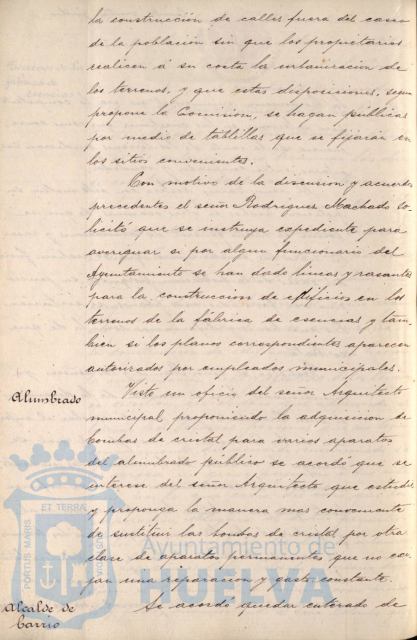 la construcción de calles fuera del casco
de la población sin que los propietarios
realicen á su costa la urbanización de
los terrenos, y que estas disposiciones, segun
propone la Comision, se hagan públicas
por medio de tablillas que se fijarán en
los sitios convenientes.
Con motivo de la discusion y acuerdo
precedentes el señor Rodriguez Machado so-
licitó que se instruya expediente para
averiguar si por algun funcionario del
Ayuntamiento se han dado lineas y rasantes
para la construccion de edificios en los
terrenos de la fábrica de esencias y tam-
bien si los planos correspondientes aparecen
autorizados por empleados municipales.
Alumbrado
Visto un oficio del señor Arquitecto
municipal proponiendo la adquisicion de
bombas de cristal para varios aparatos
del alumbrado público se acordó que se
interese del señor Arquitecto que estudie
y proponga la manera mas conveniente
de sustituir las bombas de cristal por otra
clase de aparatos permanentes que no exi-
jan una reparacion y gasto constante.
Alcalde de
barrio
Se acordó quedar enterado de
PORTUS MARIS
ET TERRÆ
CUSTODIA
Ayuntamiento de
HUELVA